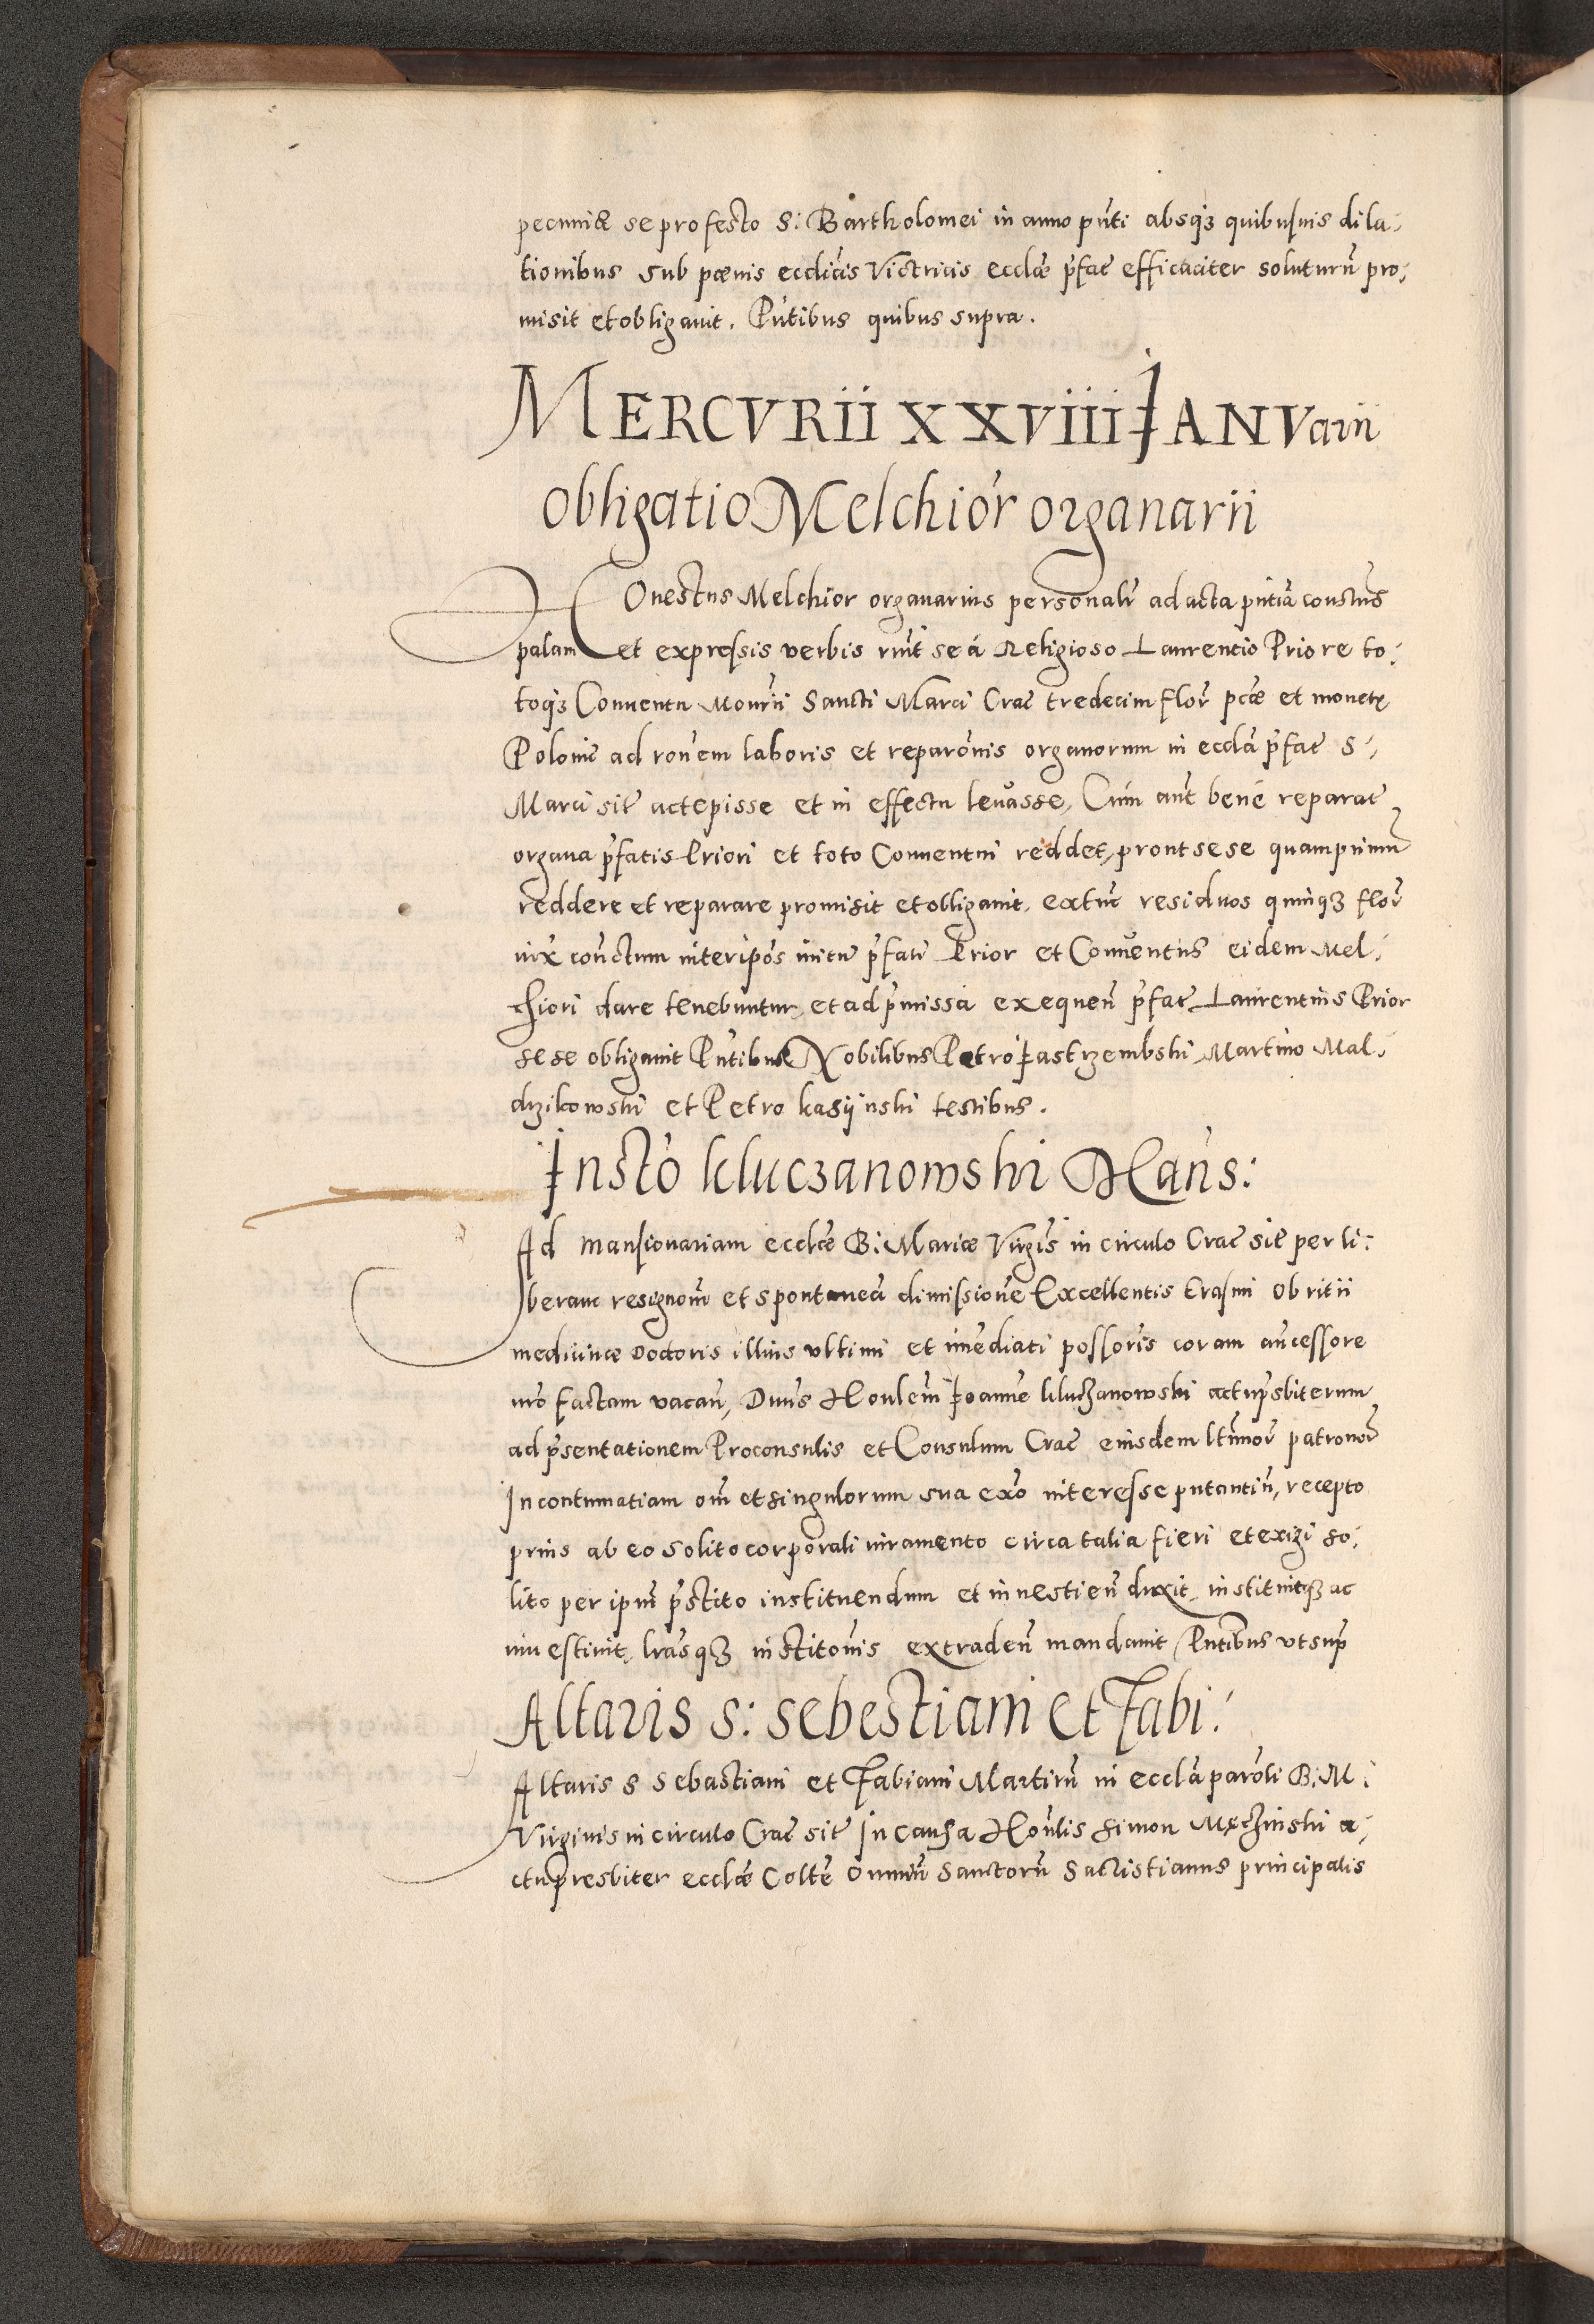 pecuniæ se pro festo S: Bartholomei in anno pñti absq꜏ quibusuis dila-
tionibus sub pœnis ecclicis Victricis ecclæ p̃fat̃ efficaciter soluturũ pro-
misit et obligauit. Pñtibus quibus supra.
MERCVRII XXVIII IANVarii
Obligatio Melchior organarii
Honestus Melchior organarius personalr̃ ad acta pñtia constitũs
palam et expressis verbis rñit se á Religioso Laurentio Priore to-
toq꜏ Conuentu Moñrii Sancti Marci Crac̃ tredecim flor̃ pcæ et monetę
Poloniẽ ad roñem laboris et reparoñis organorum in ecclã p̃fat̃ S.
Marci sit̃ accepisse et in effectu leuasse, Cum aũt bene reparat̃
organa p̃fatis Priori et toto Conuentui reddet, prout sese quamprimũ
reddere et reparare promisit et obligauit, extũc residuos quinq꜏ flor̃
iux̃ coñctum inter ip̃os initũ p̃fati Prior et Conuentus eidem Mel-
chiori dare tenebuntur, et ad p̃missa exequeñ p̃fat̃ Laurentius Prior
sese obligauit Pñtibus Nobilibus Petro Jastrzembski Martino Mal-
drzikowski et Petro kasijnski testibus.
Instõ kluczanowski Mañs:
Ad mansionariam ecclæ B: Mariæ Virgĩs in circulo Crac̃ sit̃ per li-
beram resignoñ et spontanea dimissione Excellentis Erasmi Obritii
medicinæ doctoris illius vltimi et im̃ediati possoris coram añcessore
nr̃o factam vacañ, Dñus Hoñlem Joanne kluczanowski actup̃sbiterum
ad p̃sentationem Proconsulis et Consulum Crac̃ eiusdem ltĩmor̃ patronor̃
In contumatiam om̃ et singulorum sua ex̃o interesse putantiũ, recepto
prius ab eo solito corporali iuramento circa talia fieri et exigi so-
lito per ipm̃ p̃stito instituendum et inuestieñ duxit, instituitq꜏ ac
inuestiuit, lr̃asq꜏ institoñis extradeñ mandauit Pñtibus vt sup̃
Altaris S: Sebestiani et Fabi:
Altaris S Sebastiani et Fabiani Martirũ in ecclã parõli B: M:
Virginis in circulo Crac̃ sit̃ In causa Hoñlis Simon Męchinski a-
ctupresbiter ecclæ Collẽ Omniũ Sanctorũ Sacristianus principalis